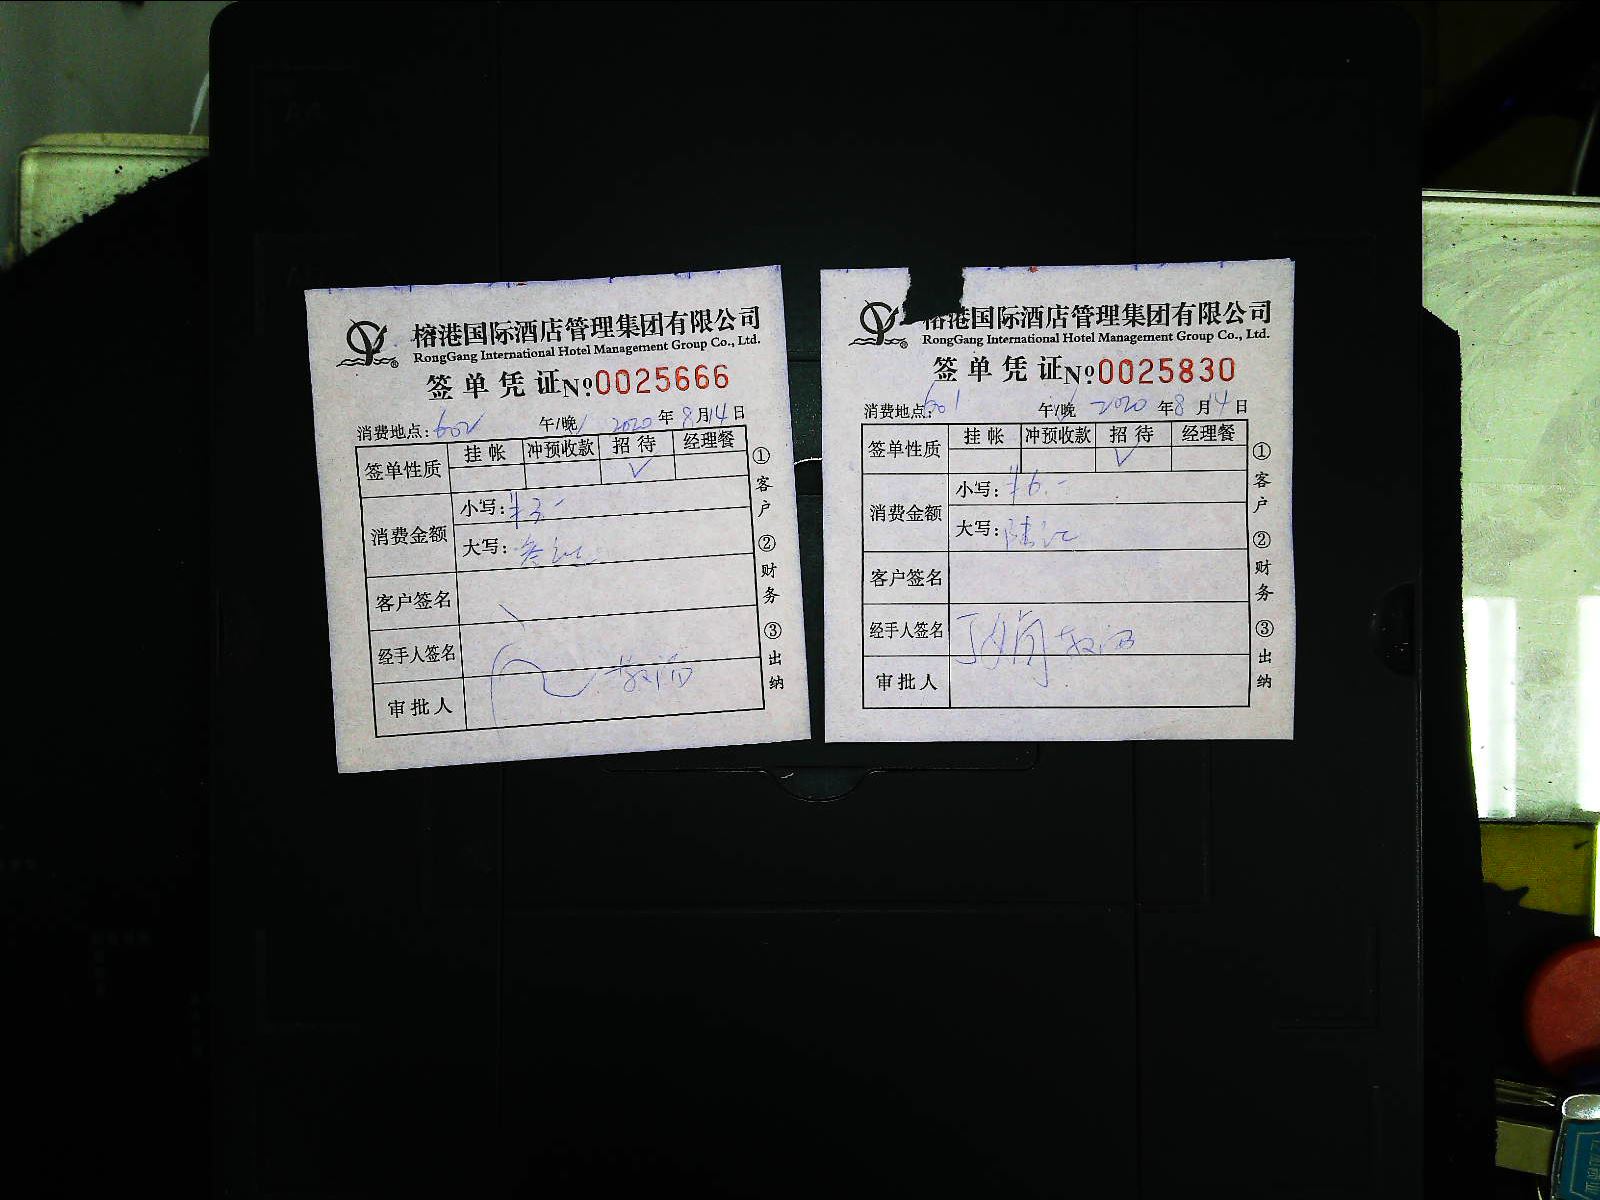 榕港国际酒店管理集团有限公司
RongGang International Hotel Management Group Co., Ltd.
签单凭证 №0025666
消费地点: 602 午/晚 2020年8月14日
签单性质 挂帐 冲预收款 招待 经理餐
✓
消费金额 小写: ¥3.-
大写: 叁元
客户签名
经手人签名
审批人
①客户 ②财务 ③出纳
榕港国际酒店管理集团有限公司
RongGang International Hotel Management Group Co., Ltd.
签单凭证 №0025830
消费地点: 601 午/晚 2020年8月14日
签单性质 挂帐 冲预收款 招待 经理餐
✓
消费金额 小写: ¥6.-
大写: 陆元
客户签名
经手人签名
审批人
①客户 ②财务 ③出纳